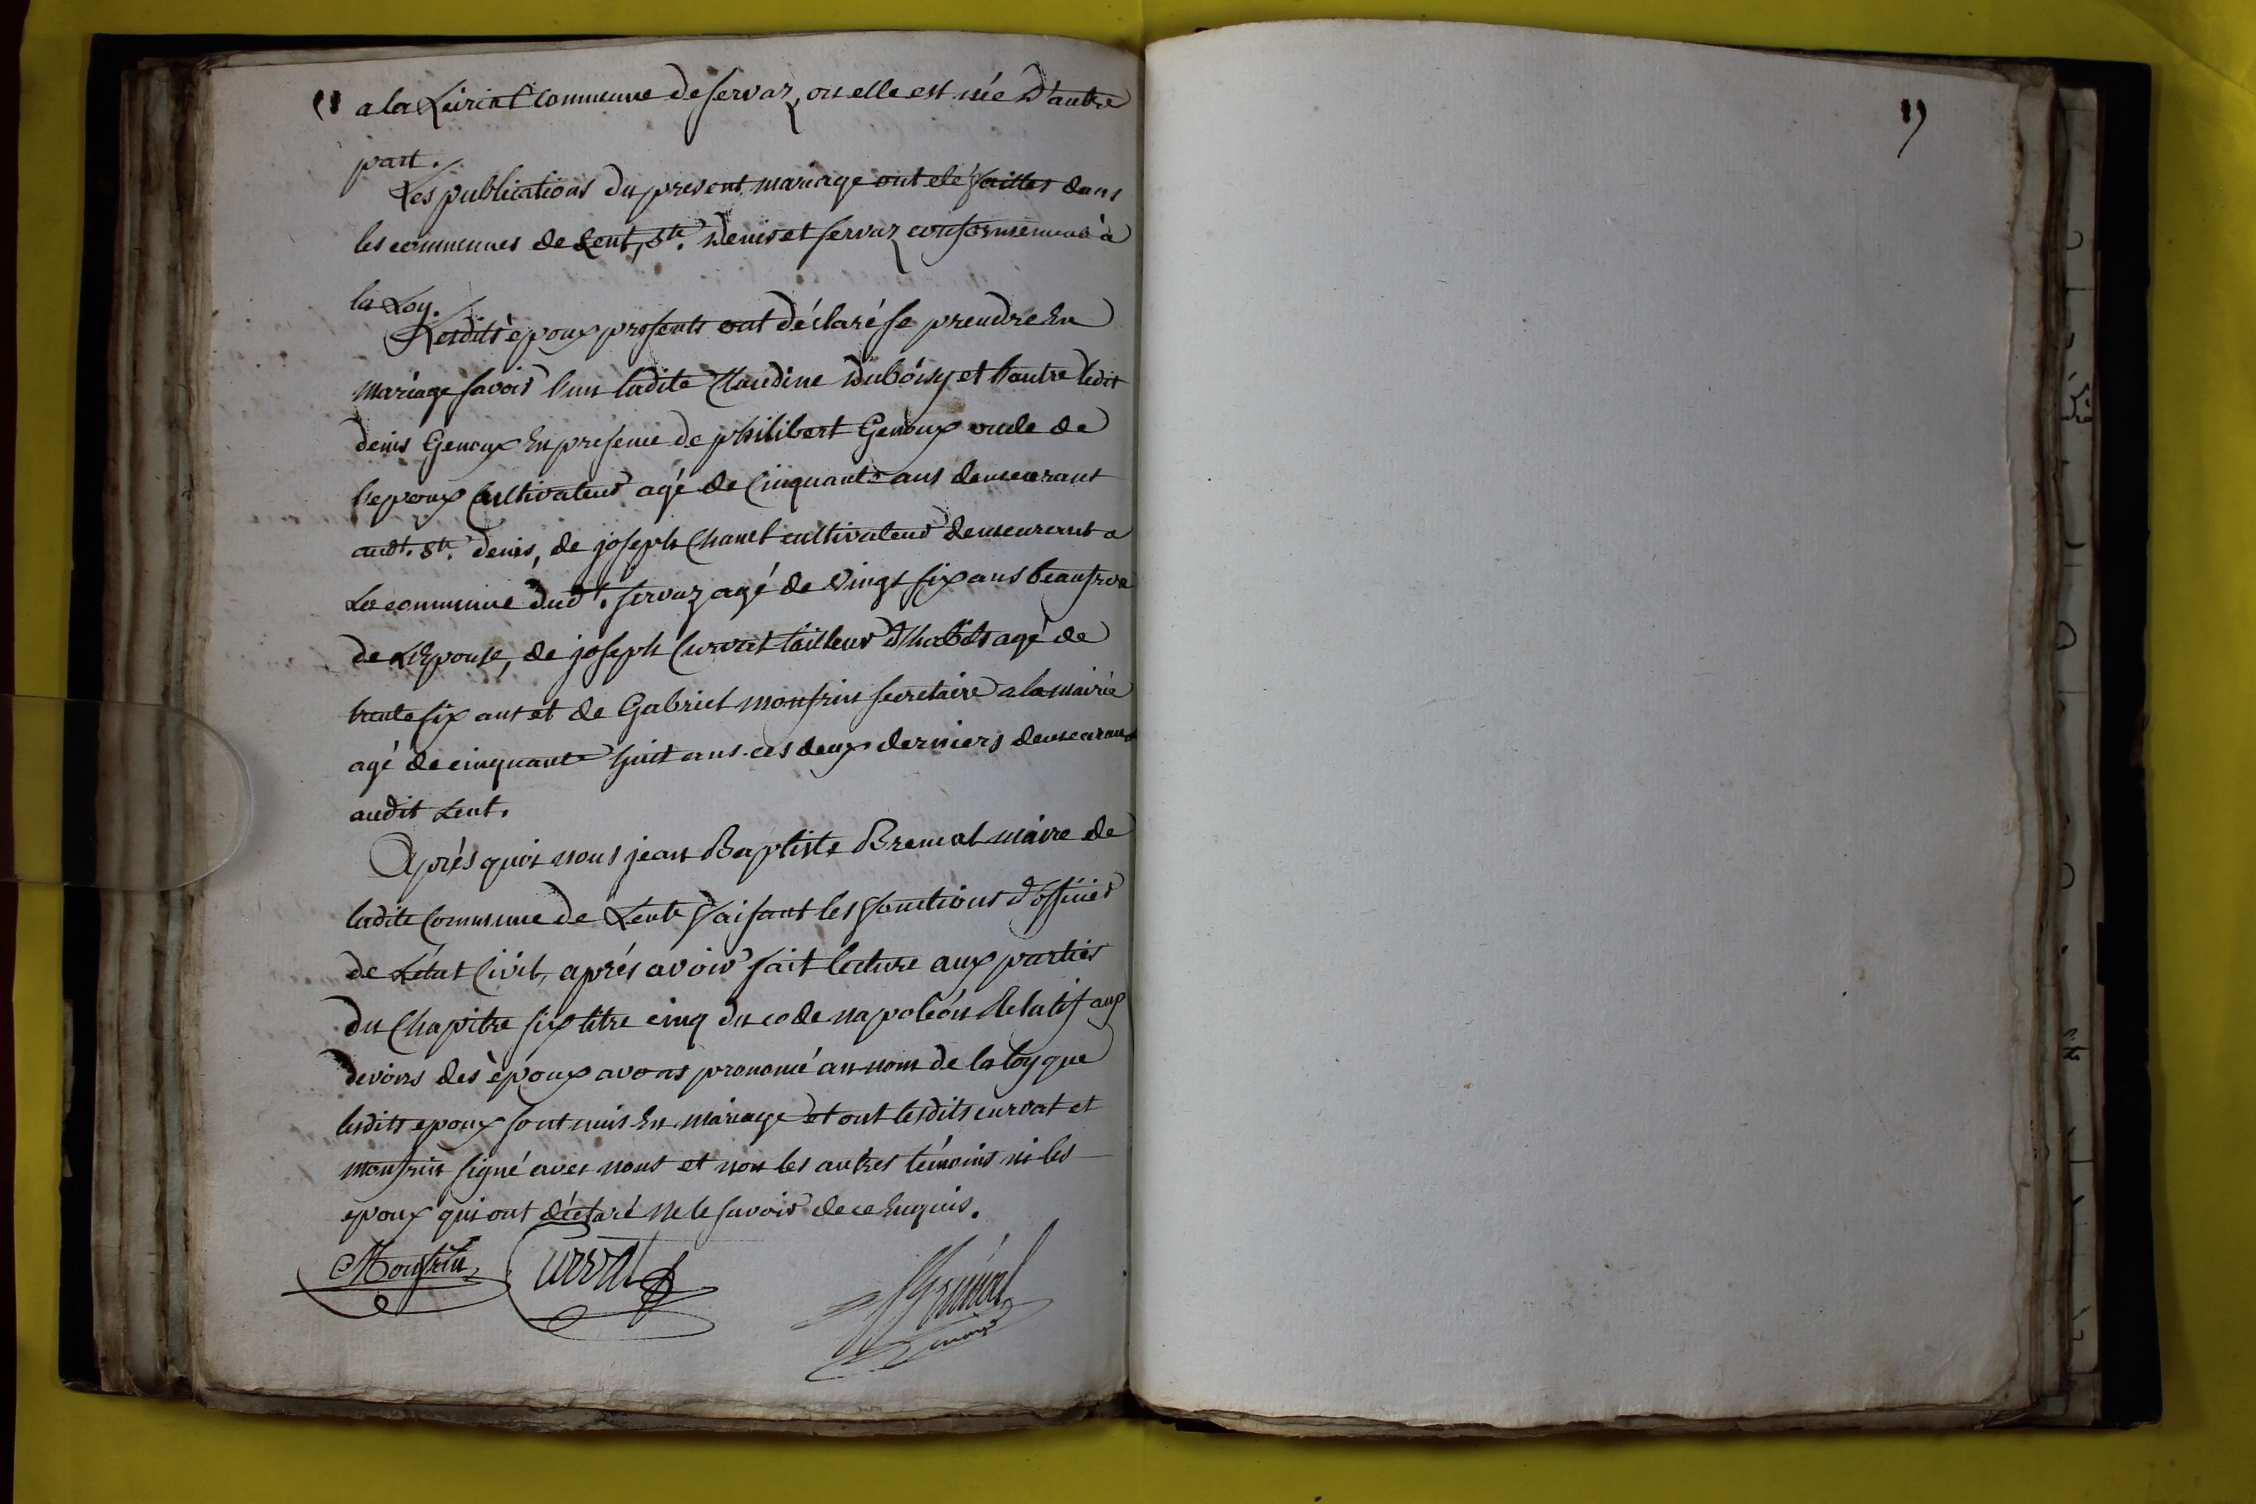 a la Leiriat commune de servaz, ou elle est née d'autre
part.
Les publications du present mariage ont eté faittes dans
les communes de Lent, St. Denis et servaz conformement à
la Loy.
Lesdits èpoux presents ont déclaré se prendre En
mariage savoir l'un ladite Claudine Duboisy et l'autre ledit
denis Genoux En presence de philibert Genoux oncle de
l'epoux Cultivateur agé de Cinquante ans demeurant
audt. St. denis, de joseph Chanel cultivateur demeurant a
La commune dudt. servaz agé de vingt six ans beaufrere
de L'Epouse, de joseph Curvat tailleur d'habits agé de
trente six ans et de Gabriel monfrin secretaire a la mairie
agé de cinquante huit ans ces deux derniers demeurant
audit Lent.
Après quoi nous jean Baptiste Bremal maire de
ladite Commune de Lent faisant les fonctions d'officier
de L'état Civil, aprés avoir fait lecture aux parties
du Chapitre six titre cinq du code napoléon Relatif aux
devoirs des èpoux avons prononcé au nom de la loy que
lesdits epoux sont unis En mariage et ont lesdits curvat et
monfrin signé avec nous et non les autres témoins ni les
epoux qui ont déclaré ne le savoir de ce Enquis.
Monfrin Curvat
maire
19